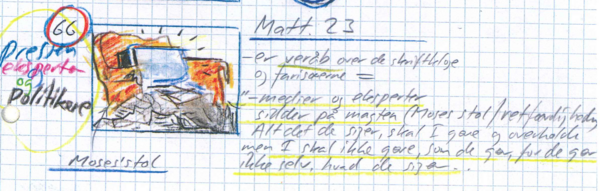 66
Matt. 23
Pressen
eksperter
og
politikere
- er veråb over de skriftkloge
og farisæerne =
"- medier og eksperter
sidder på magten (Moses stol/retfærdigheden)
Alt det de siger, skal I gøre og overholde
men I skal ikke gøre, som de gør, for de gør
ikke selv, hvad de siger...
Moses'stol